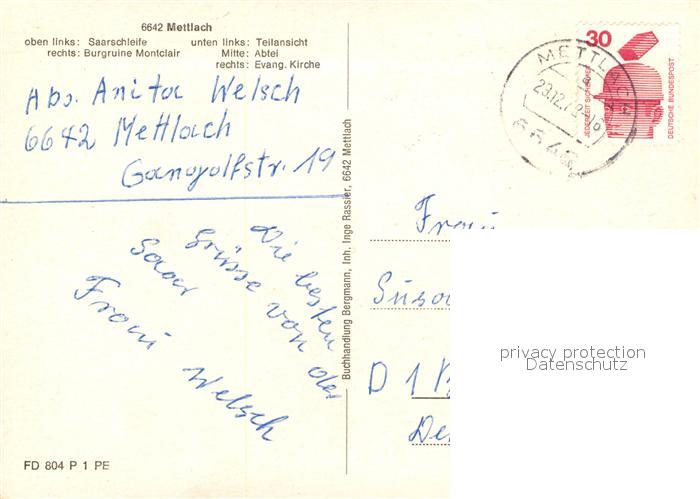 6642 Mettlach
oben links: Saarschleife unten links: Teilansicht
rechts: Burgruine Montclair Mitte: Abtei
rechts: Evang. Kirche
Abs. Anita Welsch
6642 Mettlach
Gangolfstr. 19
Die besten
Grüsse von der
Saar
Frau Welsch
FD 804 P 1 PE
Buchhandlung Bergmann, Inh. Inge Rassier, 6642 Mettlach
30
JEDERZEIT SICHERHEIT
DEUTSCHE BUNDESPOST
METTLACH
6642
Frau
D 1
privacy protection
Datenschutz